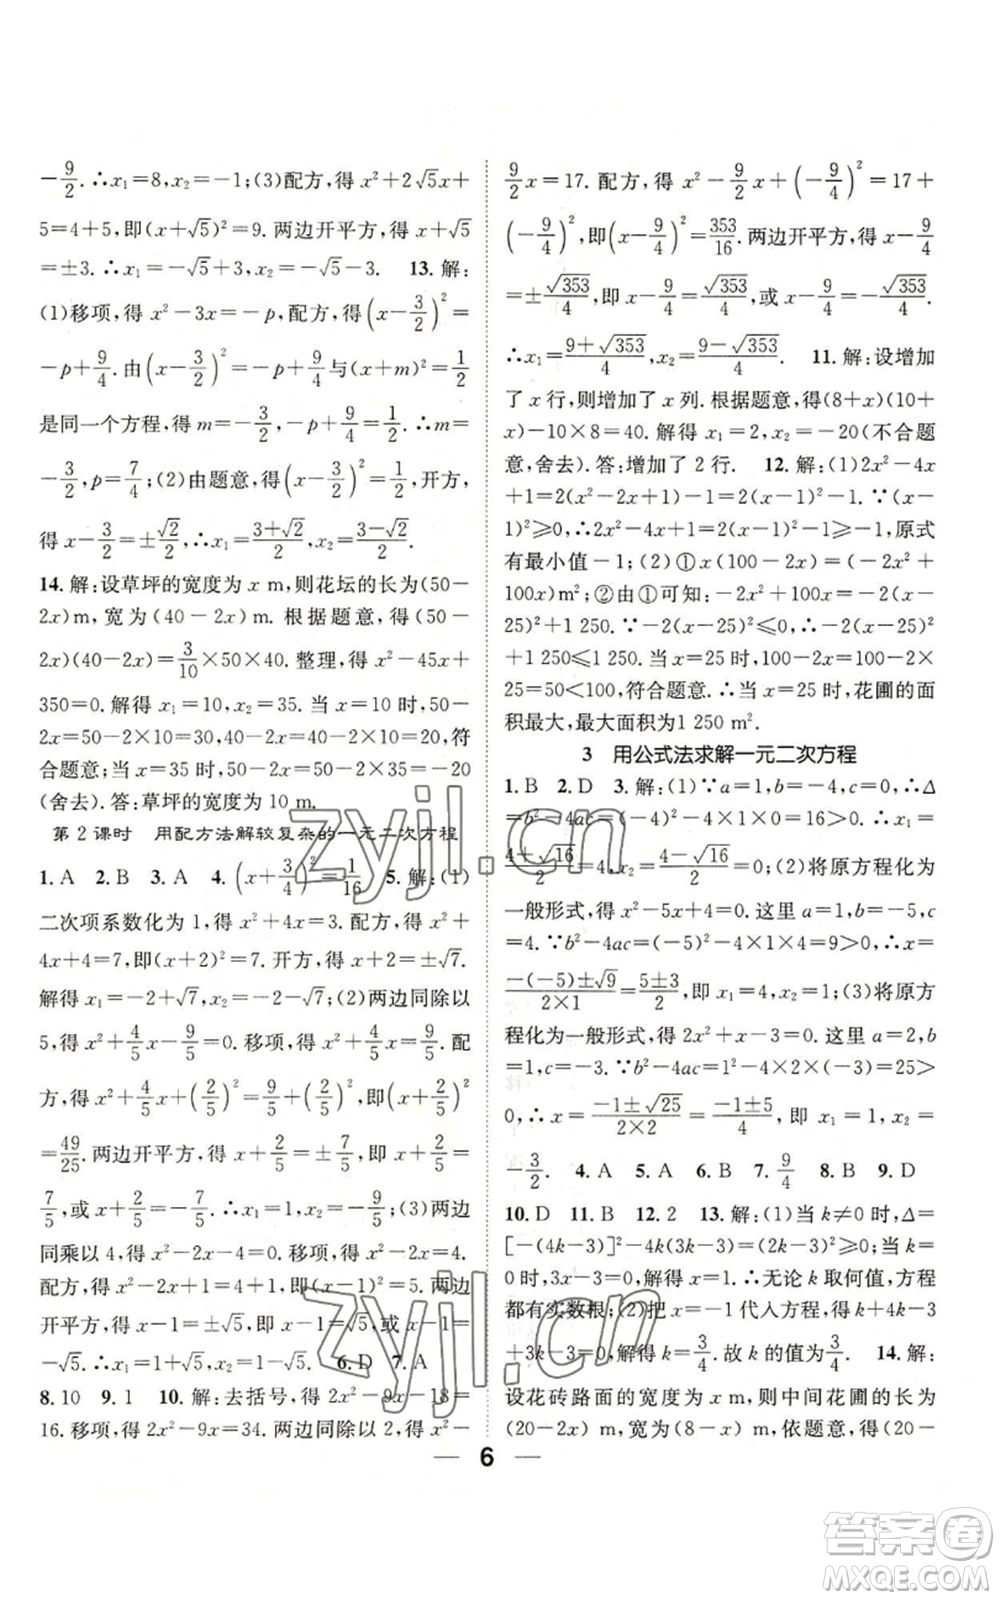 -9/2.∴x₁=8,x₂=-1;(3)配方,得 x²+2√5x+
5=4+5,即(x+√5)²=9.两边开平方,得 x+√5
=±3.∴x₁=-√5+3,x₂=-√5-3. 13.解:
(1)移项,得 x²-3x=-p,配方,得(x-3/2)²=
-p+9/4.由(x-3/2)²=-p+9/4与(x+m)²=1/2
是同一个方程,得 m=-3/2,-p+9/4=1/2.∴m=
-3/2,p=7/4;(2)由题意,得(x-3/2)²=1/2,开方,
得 x-3/2=±√2/2,∴x₁=(3+√2)/2,x₂=(3-√2)/2.
14.解:设草坪的宽度为 x m,则花坛的长为(50-
2x)m,宽为(40-2x)m.根据题意,得(50-
2x)(40-2x)=3/10×50×40.整理,得 x²-45x+
350=0.解得 x₁=10,x₂=35.当 x=10 时,50-
2x=50-2×10=30,40-2x=40-2×10=20,符
合题意;当 x=35 时,50-2x=50-2×35=-20
(舍去).答:草坪的宽度为 10 m.
第 2 课时 用配方法解较复杂的一元二次方程
1.A 2.B 3.A 4.(x+3/4)²=1/16 5.解:(1)
二次项系数化为 1,得 x²+4x=3.配方,得 x²+
4x+4=7,即(x+2)²=7.开方,得 x+2=±√7.
解得 x₁=-2+√7,x₂=-2-√7;(2)两边同除以
5,得 x²+4/5x-9/5=0.移项,得 x²+4/5x=9/5.配
方,得 x²+4/5x+(2/5)²=9/5+(2/5)²,即(x+2/5)²
=49/25.两边开平方,得 x+2/5=±7/5,即 x+2/5=
7/5,或 x+2/5=-7/5.∴x₁=1,x₂=-9/5;(3)两边
同乘以 4,得 x²-2x-4=0.移项,得 x²-2x=4.
配方,得 x²-2x+1=4+1,即(x-1)²=5.两边
开平方,得 x-1=±√5,即 x-1=√5,或 x-1=
-√5.∴x₁=1+√5,x₂=1-√5. 6.D 7.A
8.10 9.1 10.解:去括号,得 2x²-9x-18=
16.移项,得 2x²-9x=34.两边同除以 2,得 x²-
9/2x=17.配方,得 x²-9/2x+(-9/4)²=17+
(-9/4)²,即(x-9/4)²=353/16.两边开平方,得 x-9/4
=±√353/4,即 x-9/4=√353/4,或 x-9/4=-√353/4.
∴x₁=(9+√353)/4,x₂=(9-√353)/4. 11.解:设增加
了 x 行,则增加了 x 列.根据题意,得(8+x)(10
+x)-10×8=40.解得 x₁=2,x₂=-20(不合题
意,舍去).答:增加了 2 行. 12.解:(1)2x²-4x
+1=2(x²-2x+1)-1=2(x-1)²-1.∵(x-
1)²≥0,∴2x²-4x+1=2(x-1)²-1≥-1,原式
有最小值-1;(2)①x(100-2x)=(-2x²+
100x)m²;②由①可知:-2x²+100x=-2(x-
25)²+1 250.∵-2(x-25)²≤0,∴-2(x-
25)²+1 250≤1 250.当 x=25 时,100-2x=50,
25=50<100,符合题意.∴当 x=25 时,花圃的面
积最大,最大面积为1 250 m².
3 用公式法求解一元二次方程
1.B 2.D 3.解:(1)∵a=1,b=-4,c=0,∴Δ
=b²-4ac=(-4)²-4×1×0=16>0,∴x₁=
(4+√16)/2=4,x₂=(4-√16)/2=0;(2)将原方程化为
一般形式,得 x²-5x+4=0.这里 a=1,b=-5,c
=4.∵b²-4ac=(-5)²-4×1×4=9>0,∴x=
(-(-5)±√9)/(2×1)=(5±3)/2,即 x₁=4,x₂=1;(3)将原方
程化为一般形式,得 2x²+x-3=0.这里 a=2,b
=1,c=-3.∵b²-4ac=1²-4×2×(-3)=25>
0,∴x=(-1±√25)/(2×2)=(-1±5)/4,即 x₁=1,x₂=
-3/2. 4.A 5.A 6.B 7.9/4 8.B 9.D
10.D 11.B 12.2 13.解:(1)当 k≠0 时,Δ=
[-(4k-3)]²-4k(3k-3)=(2k-3)²≥0;当 k=
0 时,3x-3=0,x=1.∴无论 k 取何值,方程
都有实数根;(2)把 x=-1代入方程,得 k+4k-3
+3k-3=0,解得 k=3/4.故 k 的值为3/4. 14.解:
设花砖路面的宽度为 x m,则中间花圃的长为
(20-2x) m,宽为(8-x) m,依题意,得(20-
6
zyjl.cn
zyjl.cn
答案圈
MXQE.COM